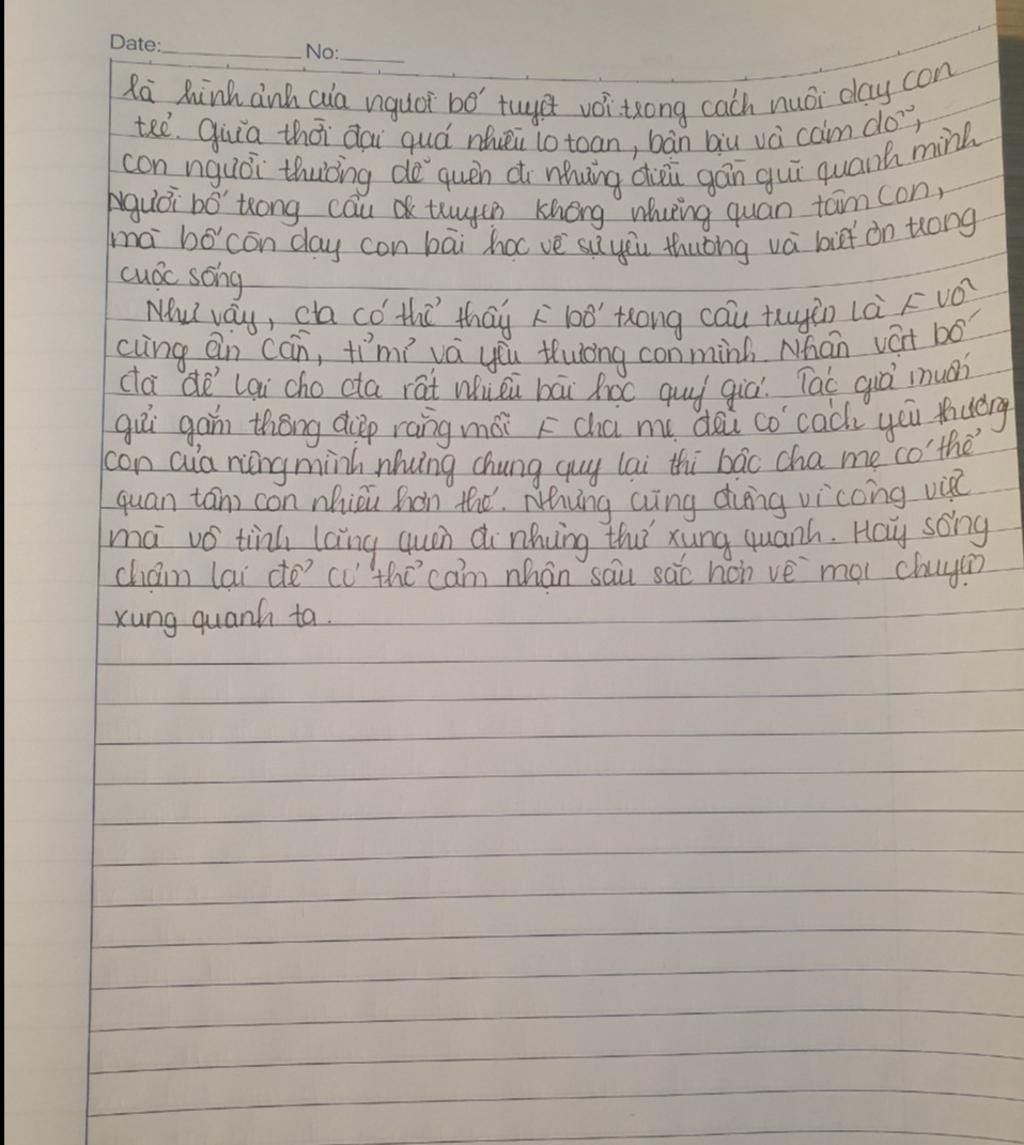 Date: No:
là hình ảnh của người bố tuyệt vời trong cách nuôi dạy con
trẻ. Giữa thời đại quá nhiều lo toan, bận bịu và cám dỗ,
con người thường dễ quên đi những điều gần gũi quanh mình
Người bố trong câu truyện không những quan tâm con,
mà bố còn dạy con bài học về sự yêu thương và biết ơn trong
cuộc sống
Như vậy, cta có thể thấy F bố trong câu truyện là F vô
cùng ân cần, tỉ mỉ và yêu thương con mình. Nhân vật bố
đã để lại cho cta rất nhiều bài học quý giá. Tác giả muốn
gửi gắm thông điệp rằng mỗi F cha mẹ đều có cách yêu thương
con của riêng mình nhưng chung quy lại thì bậc cha mẹ có thể
quan tâm con nhiều hơn thế. Nhưng cũng đừng vì công việc
mà vô tình lãng quên đi những thứ xung quanh. Hãy sống
chậm lại để có thể cảm nhận sâu sắc hơn về mọi chuyện
xung quanh ta.